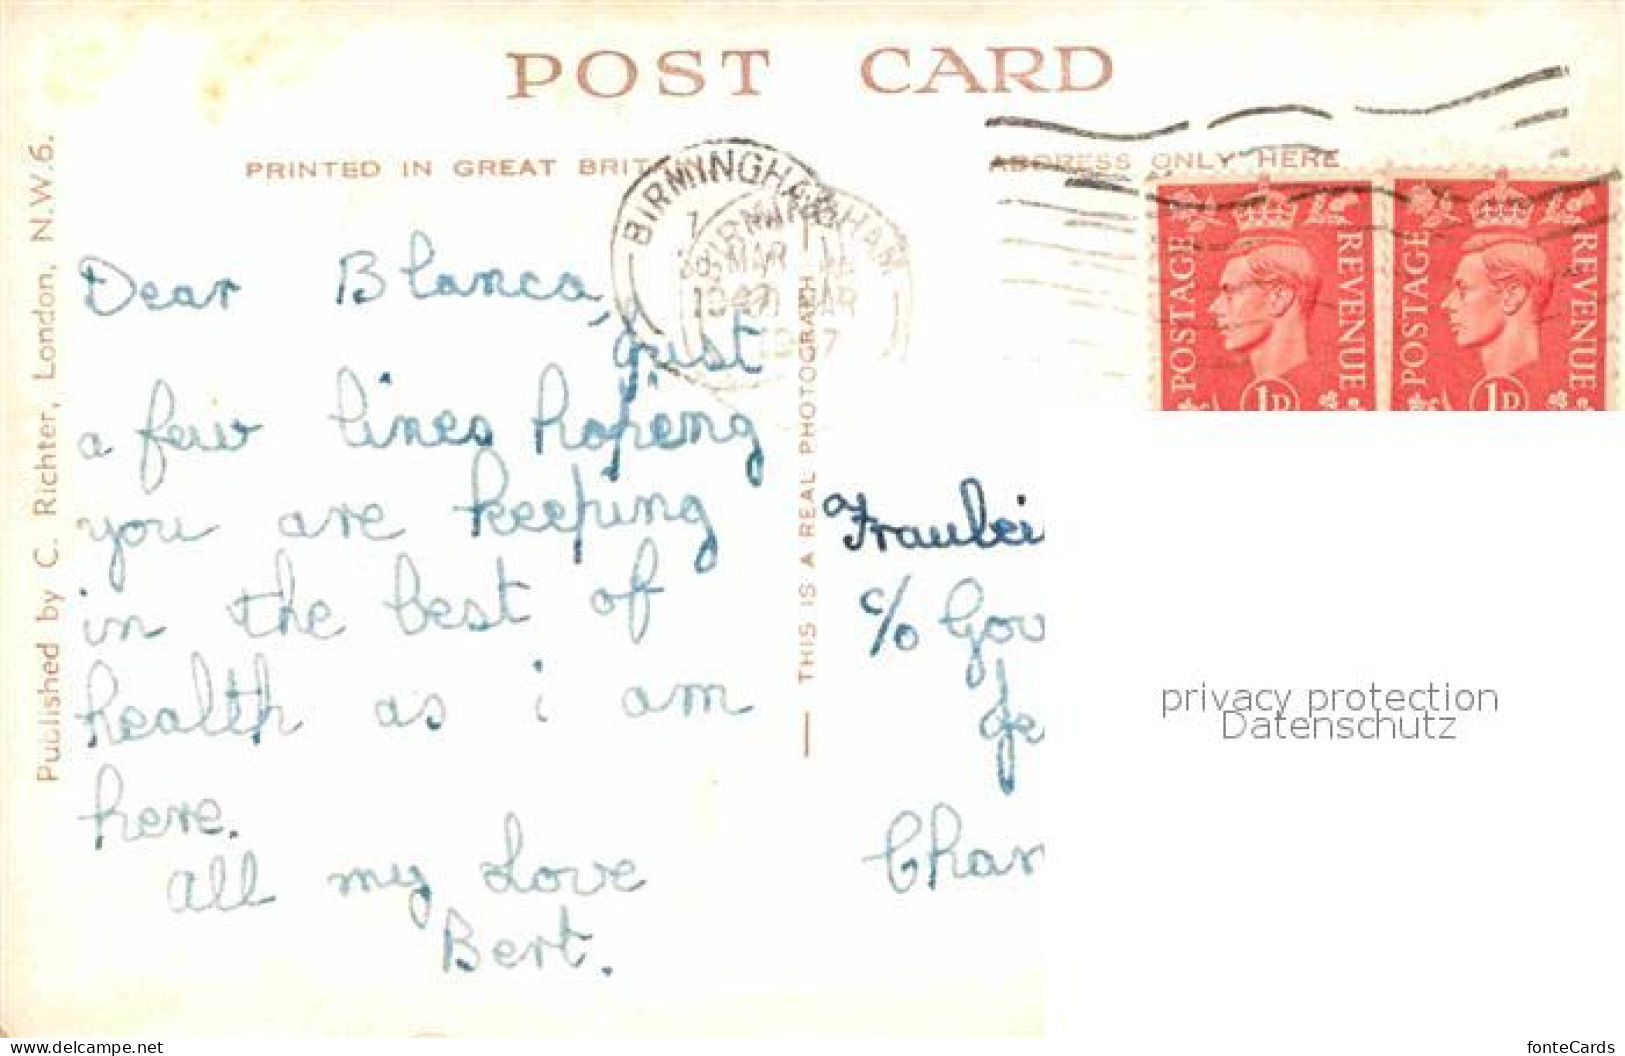 POST CARD
PRINTED IN GREAT BRIT
ADDRESS ONLY HERE
BIRMINGHAM
MAR
1947
BIRMINGHAM
POSTAGE REVENUE
1D
POSTAGE REVENUE
1D
Published by C. Richter, London, N.W.6.
THIS IS A REAL PHOTOGRAPH
Dear Blanca,
Just
a few lines hopeing
you are keeping
in the best of
health as i am
here.
All my Love
Bert.
Fraulei
c/o Gov
Ge
Char
privacy protection
Datenschutz
www.delcampe.net
fonteCards